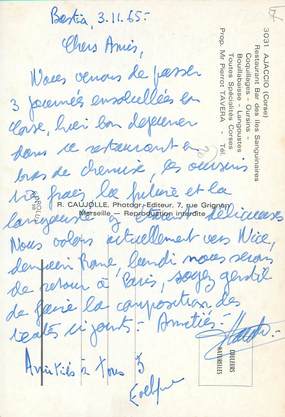 Bastia, 3.11.65-
Chers Amis,
Nous venons de passer
3 journées ensoleillées en
Corse, hier bon déjeuner
dans ce restaurant en
bras de chemise, les oursins
frais, la friture et la
langouste délicieuses
Nous volons actuellement vers Nice,
demain Rome, lundi nous serons
de retour à Paris, soyez gentil
de faire la composition des
textes ci joints. Amitiés.
Amitiés à tous 3
Evelyne
3031 AJACCIO (Corse)
Restaurant Bar des Iles Sanguinaires
Coquillages - Oursins -
Bouillabaisse - Langoustes
Toutes Spécialités Corses
Prop. Mr Pierrot TAVERA - Tél.
R. CAUJOLLE, Photogr-Editeur, 7, rue Grignan
Marseille — Reproduction interdite
COULEURS
NATURELLES